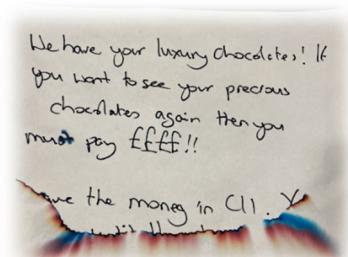 We have your luxury chocolates! If
you want to see your precious
chocolates again then you
must pay ££££!!
the money in C11.